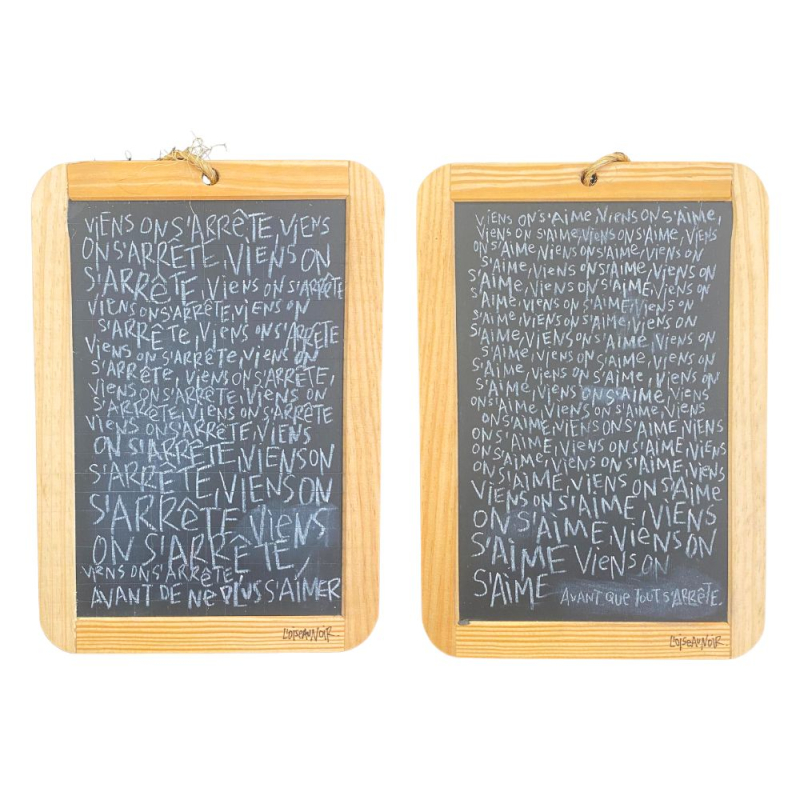 ViENS ON S'ARRÊTE, ViENS
ON S'ARRÊTE, ViENS ON
S'ARRÊTE, ViENS ON S'ARRÊTE
ViENS ON S'ARRÊTE, ViENS ON
S'ARRÊTE, ViENS ON S'ARRÊTE
ViENS ON S'ARRÊTE, ViENS ON
S'ARRÊTE, ViENS ON S'ARRÊTE,
ViENS ON S'ARRÊTE, ViENS ON
S'ARRÊTE, ViENS ON S'ARRÊTE
ViENS ON S'ARRÊTE, ViENS
ON S'ARRÊTE, ViENS ON
S'ARRÊTE, ViENS ON
S'ARRÊTE, ViENS
ON S'ARRÊTE,
ViENS ON S'ARRÊTE,
AVANT DE NE PLUS S'AiMER
L'OISEAU NOIR.
ViENS ON S'AiME, ViENS ON S'AiME,
ViENS ON S'AiME, ViENS ON S'AiME, ViENS
ON S'AiME, ViENS ON S'AiME, ViENS ON
S'AiME, ViENS ON S'AiME, ViENS ON
S'AiME, ViENS ON S'AiME, ViENS ON
S'AiME, ViENS ON S'AiME, ViENS ON
S'AiME, ViENS ON S'AiME, ViENS ON
S'AiME, ViENS ON S'AiME, ViENS ON
S'AiME, ViENS ON S'AiME, ViENS ON
S'AiME, ViENS ON S'AiME, ViENS
ON S'AiME, ViENS ON S'AiME, ViENS
ON S'AiME, ViENS ON S'AiME, ViENS
ON S'AiME, ViENS ON S'AiME, ViENS
ON S'AiME, ViENS ON S'AiME, ViENS
ViENS ON S'AiME, ViENS ON S'AiME
ON S'AiME, ViENS
S'AiME ViENS ON
S'AiME AVANT QUE TOUT S'ARRÊTE.
L'OISEAU NOIR